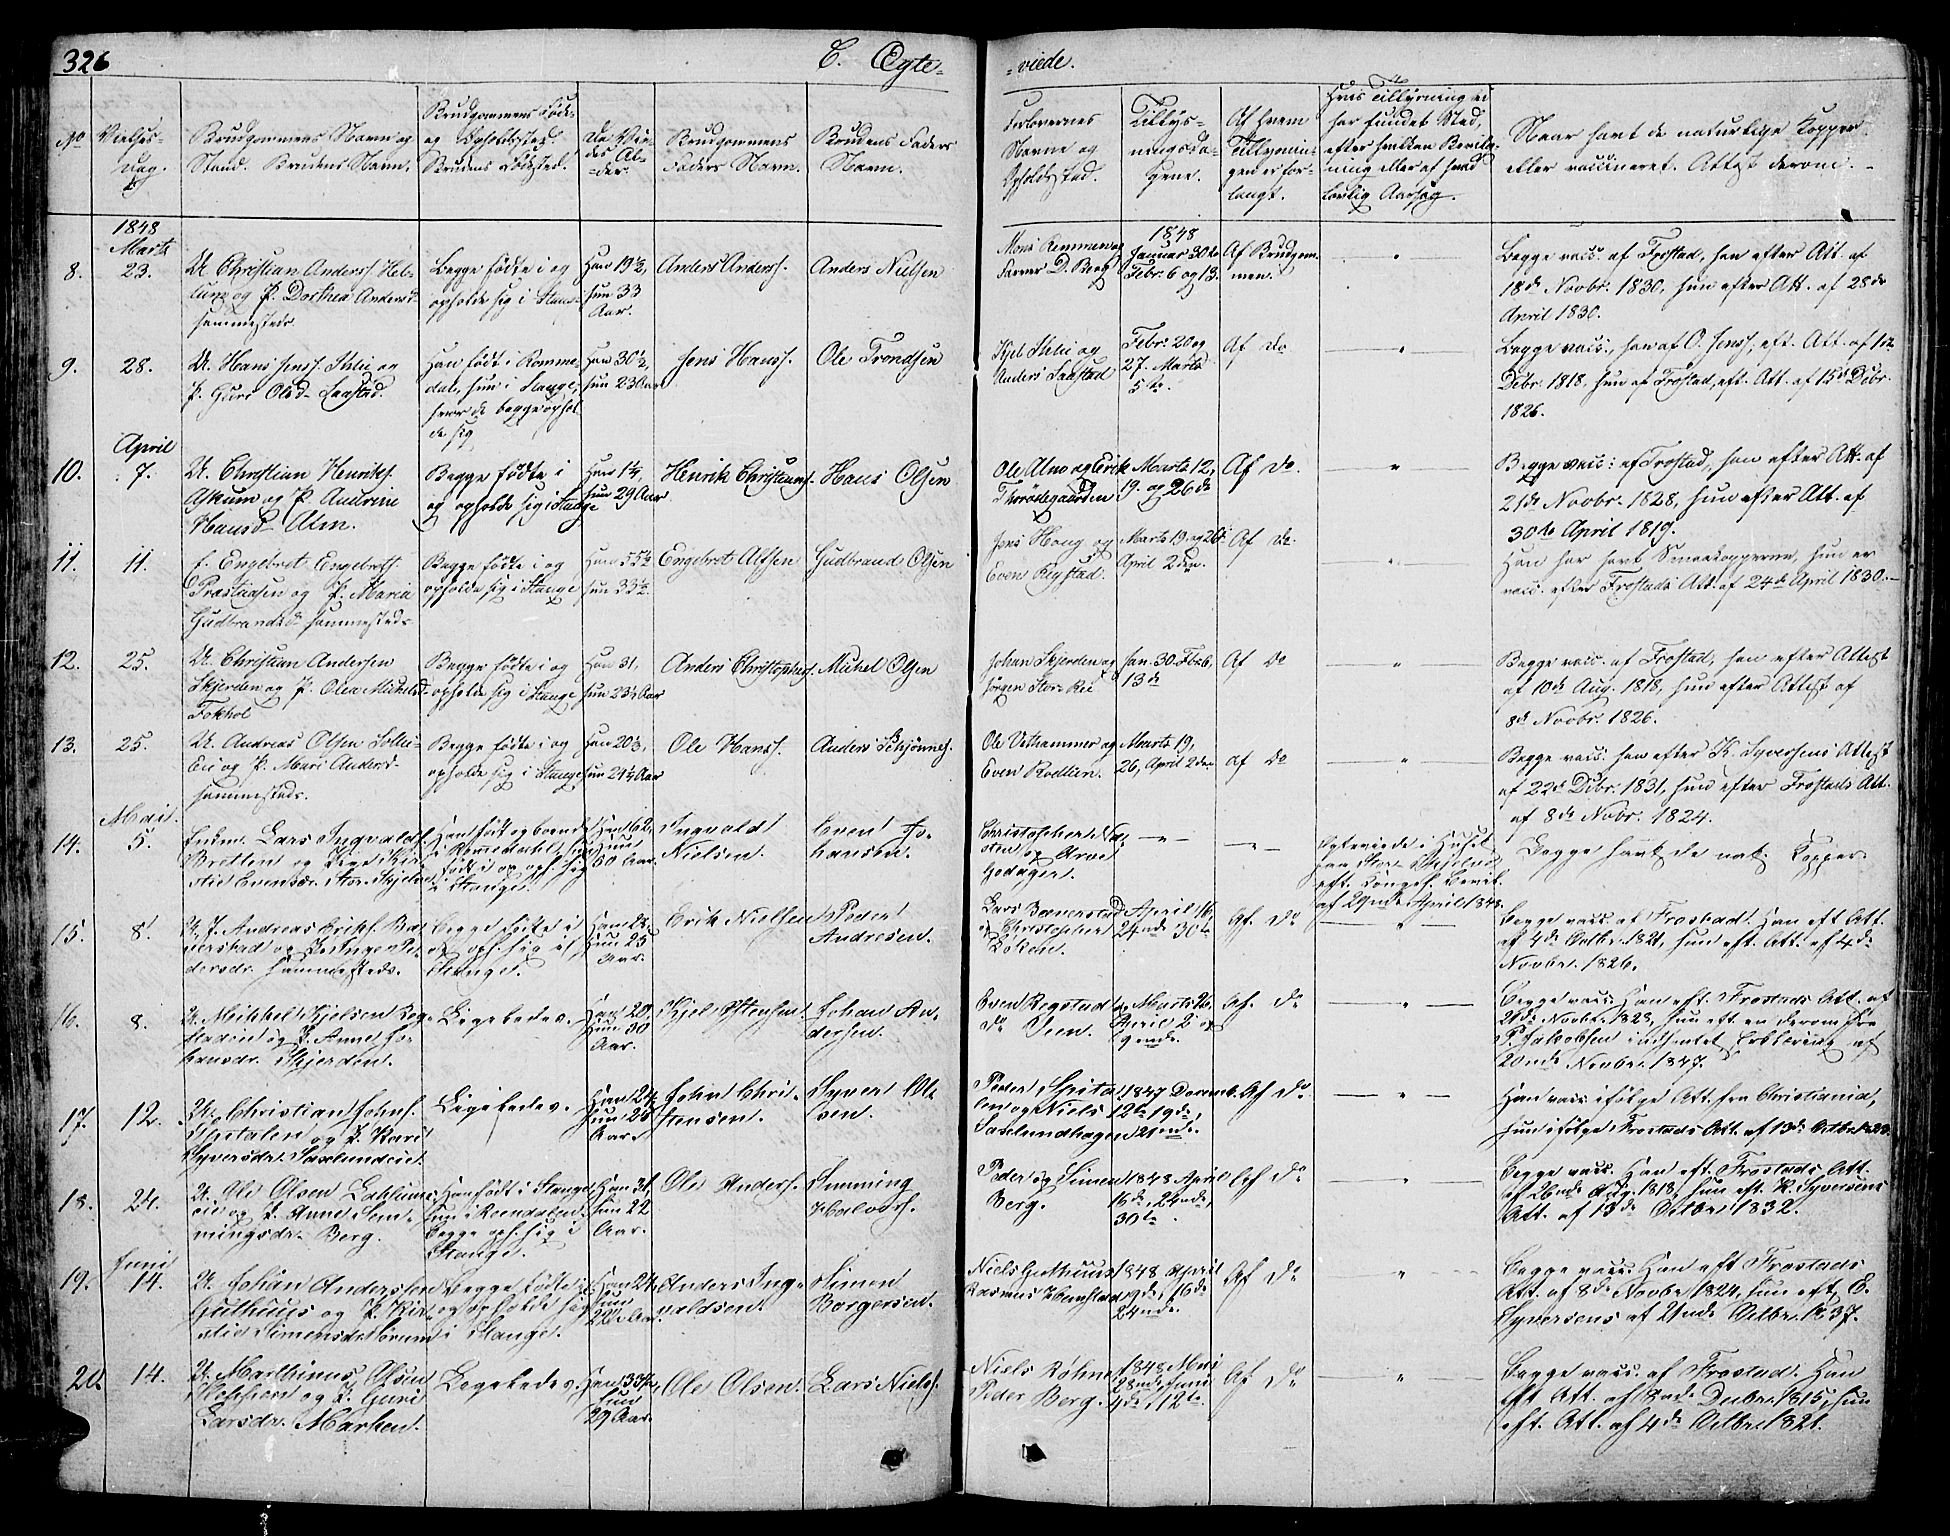 326
C. Ægte-
-viede.
No
Vielses-
dag.
Brudgommens Navn og
Stand. Brudens Navn.
Brudgommens Føde-
og Opholdssted.
Brudens Fødested.
De Vie-
des Al-
-der.
Brudgommens
Faders Navn.
Brudens Faders
Navn.
Forlovernes
Navne og
Opholdssted.
Tillys-
ningsda-
gene.
Af hvem
Tillysnin-
gen er for-
langt.
Hvis Tillysning ei
har fundet Sted,
efter hvilken Bevil-
ning eller af hvad
lovlig Aarsag.
Naar havt de naturlige Kopper
eller vaccineret. Attest derom.
1848
Marts
8.
23.
U. Christian Anderss. Hel-
og P. Dorthea Andersd.
sammesteds
Begge fødte i og
opholde sig i Stange
Han 19½
hun 33
Aar.
Anders Anderss.
Anders Nielsen
D. Berg
1848
Januar 30te
Febr. 6 og 13.
Af Brudgom-
men.
"
Begge vacc. af Frostad, han efter Att. af
18de Novbr. 1830, hun efter Att. af 28de
April 1830.
9.
28.
U. Hans Jenss. Ihlie og
P. Guri Olsd. Saastad.
Han født i Romme-
dal, hun i Stange,
hvor de begge ophol-
de sig
Han 30½,
hun 23 Aar
Jens Hanss.
Ole Trondsen
Kjel Ihlie og
Anders Saastad
Febr. 20 og
27. Marts
5te
Af Do
"
Begge vacc., han af O. Jenss, eft. Att. af 12
Decbr. 1818, hun af Frostad, eft. Att. af 15de Decbr.
1826.
April
10.
7.
U. Christian Henriks.
og P. Andrine
Hansd. Alm.
Begge fødte i
og opholde sig i Stange
hun 29 Aar
Henrik Christians.
Hans Olsen
Ole Alm og Erik
Thorødegaarden
Marts 12,
19. og 26de
Af Do.
"
Begge vacc. af Frostad, han efter Att. af
21de Novbr. 1828, hun efter Att. af
30te April 1819.
11.
11.
E. Engebret Engebretss.
Præstiæsen og P. Maria
Gudbrandsd. sammesteds
Begge fødte i og
opholde sig i Stange
Han 55½
hun 33½
Engebret Alfsen
Gudbrand Olsen
Jens Houg og
Even Rygstad.
Marts 19. og 26de
April 2den.
Af Do.
"
Han har havt Smaakopperne, hun er
vacc. efter Frostads Att. af 24de April 1830.
12.
25.
U. Christian Andersen
Skjerden og P. Olea Michelsd.
Fokhol
Begge fødte i og
opholde sig i Stange
Han 31,
hun 23½ Aar
Anders Christophers.
Michel Olsen
Johan Skjerden og
Jørgen Stor-Rie
Jan. 30. Fbr. 6,
13de
Af Do
"
Begge vacc. af Frostad, han efter Attest
af 10de Aug. 1818, hun efter Attest af
8de Novbr. 1826.
13.
25.
U. Andreas Olsen
Eie og P. Mari Andersd.
sammesteds.
Begge fødte i og
opholde sig i Stange
Han 20½,
hun 24½ Aar
Ole Hanss.
Anders Schjønnes.
Ole Vethammer og
Even Rodlien.
Marts 19,
26, April 2den
af Do
"
Begge vacc. han efter K. Syversens Attest
af 22de Decbr. 1831, hun efter Frostads Att.
af 8de Novbr. 1824.
Mai
14.
5.
Enkem. Lars Ingvalds.
Bretten og Pige Kir-
stie Evensdr. Stor-Skjelve
Han født og boende
i Rommedal, hun
født i og oph. sig
i Stange.
Han 62,
hun
50 Aar.
Ingvald
Nielsen.
Even Jo-
hansen.
Godager.
Egteviede i Huset
paa Store Skjelve
eft. Kongel. Bevil.
af 29nde April 1848.
Begge havt de nat. Kopper.
15.
8.
U. J. Andreas Eriks. Ba-
nerstad og P. Inge Pe-
dersdr. sammesteds.
Begge fødte i
og oph. sig i
Stange.
hun 25
Aar.
Erik Nielsen
Peder
Andresen.
Lars Banerstad
og Christopher
Løken.
April 16,
24nde 30te
Af Do
"
Begge vacc. af Frostad. Han eft Att.
af 4de Octbr. 1821, hun eft. Att. af 4de
Novbr. 1826.
16.
8.
U. Mikkel Kjelsen Reg-
stadeie og P. Anne Jo-
hansdr. Skjerden.
Ligeledes.
Han 20,
hun 30
Aar.
Kjel Ostensen.
Johan An-
dersen.
Even Regstad og
do Veen.
Marts 26.
April 2 og
9ende.
Af. do
"
Begge vacc. Han eft. Frostads Att. af
21de Novbr. 1828, hun eft. en derom fra
P. Jakobsen indhentet Erklæring af
20nde Novbr. 1847.
17.
12.
U. Christian Johns.
og P. Kari
Syversdr. Saxlundeie.
Ligeledes.
Han 24
hun 26
Aar.
John Chri-
stensen.
Syver Ol-
sen.
Peder Spita-
len og Niels
Saxlundhagen
1847 Decemb.
12te 19de,
21nde.
Af Do
"
Han vacc. ifølge Att. fra Christiania,
hun ifølge Frostads Att. af 13de Octbr.
18.
24.
U. Ole Olsen
eie og P. Anne Sem-
mingsdr. Berg.
Han født i Stange
hun i Romedalen.
Begge oph. sig i
Stange.
Han 31,
hun 22
Aar.
Ole Anders.
Simming
Halvors.
Peder og Simen
Berg.
1848 April
16de, 24nde,
30te.
Af Do
"
Begge vacc. Han eft. Frostads Att.
af 26nde Aug. 1818, hun eft. K. Syversens
Att. af 13de Octbr. 1832.
Juni
19.
14.
U. Johan Andersen
Guthuus og P. Kir-
stie Simensdr. Sørum
Begge fødte i
og opholde sig
i Stange.
Han 24.
hun
Aar.
Anders Ing-
valdsen.
Simen
Borgersen.
Niels Guthuus
Rasmus Hemstad
1848 April
9de, 16de
24nde.
Af Do
"
Begge vacc. Han eft Frostads
Att. af 8de Novbr. 1824, hun eft. E.
Syversens af 21nde Octbr. 1837.
20.
14.
U. Marthinus Olsen
og P. Guri
Larsdr. Marken.
Ligeledes.
hun
29 Aar.
Ole Olsen.
Lars Niels.
Niels Røhne
Peder Berg.
1848 Mai
28nde, Juni
4de 12te.
Af Do
"
Begge vacc. af Frostad. Han
eft. Att. af 8nde Decbr. 1815, hun
eft. Att. af 4de Octbr. 1821.